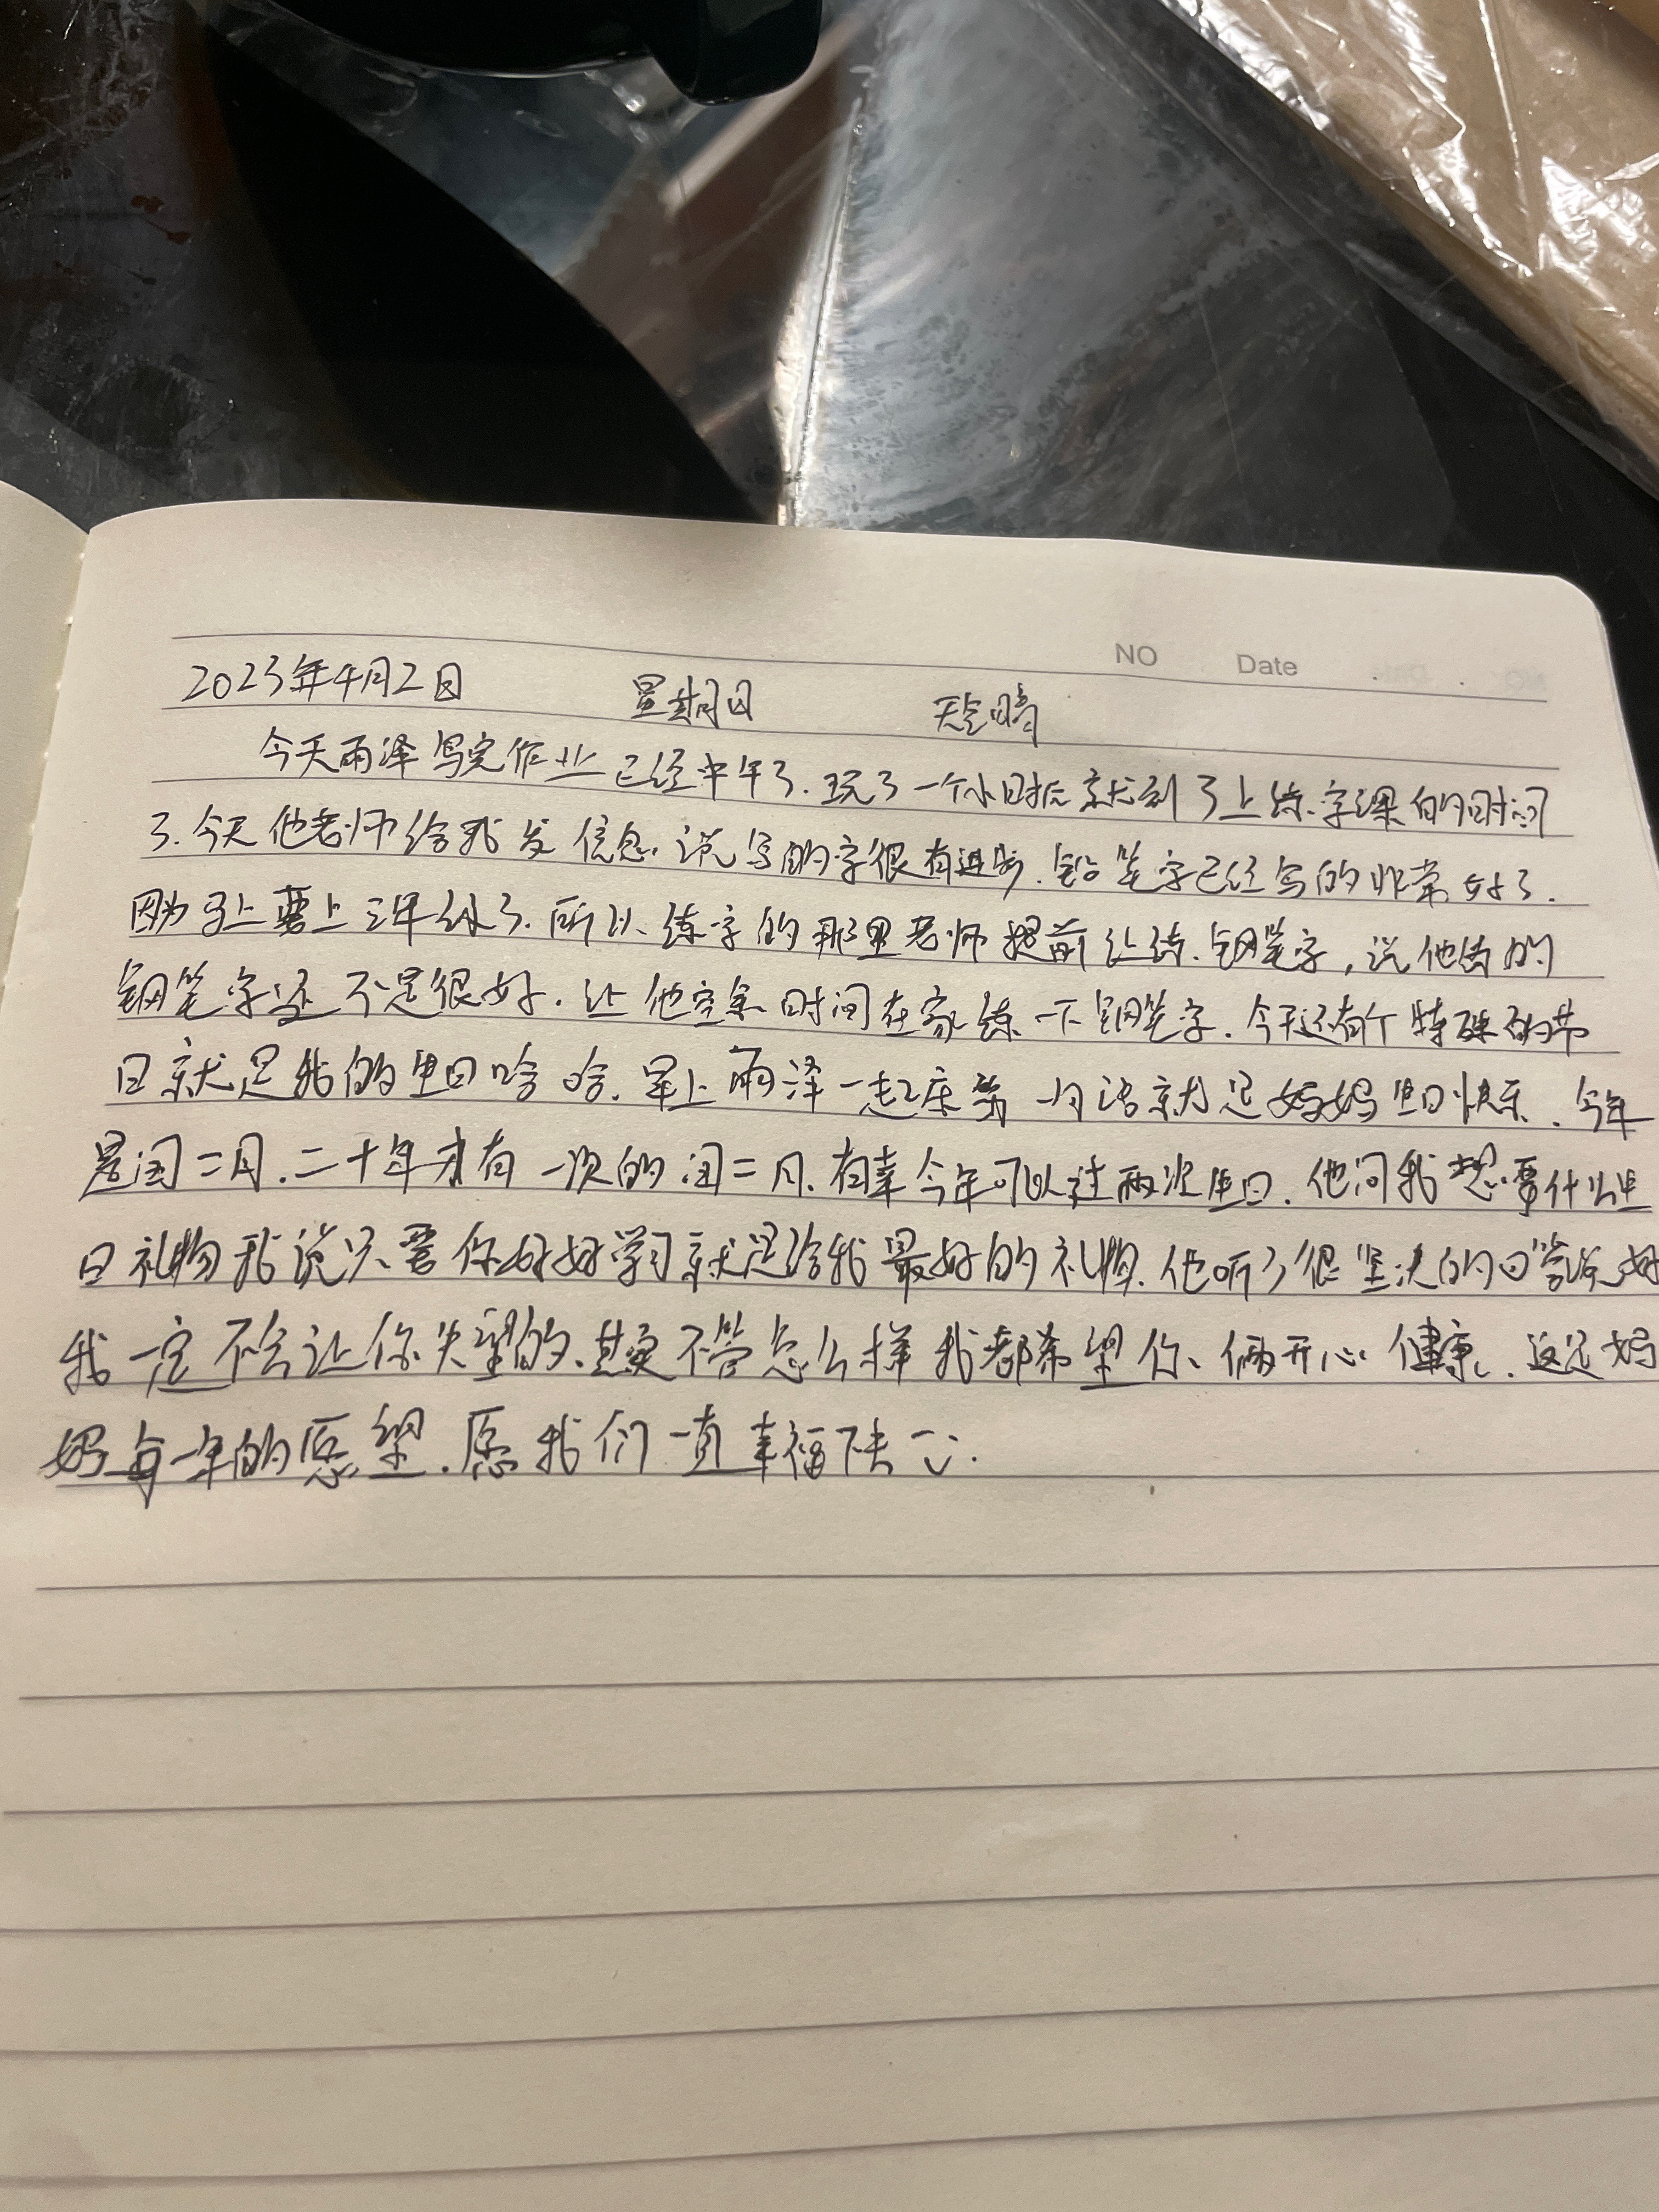 NO Date
2023年4月2日 星期日 天气晴
今天雨泽写完作业已经中午了.玩了一个小时后就到了上练字课的时间
了.今天他老师给我发信息.说写的字很有进步.铅笔字已经写的非常好了.
因为马上要上三年级了.所以练字的那里老师提前让练.钢笔字,说他的
钢笔字还不是很好.让他空余时间在家练一下钢笔字.今天还有个特殊的节
日就是我的生日哈哈.早上雨泽一起床第一句话就是妈妈生日快乐.今年
是闰二月.二十年才有一次的闰二月.有幸今年可以过两次生日.他问我想要什么生
日礼物我说只要你好好学习就是给我最好的礼物.他听了很坚决的回答说好
我一定不会让你失望的.其实不管怎么样我都希望你俩开心健康.这是妈
妈每一年的愿望.愿我们一直幸福下去